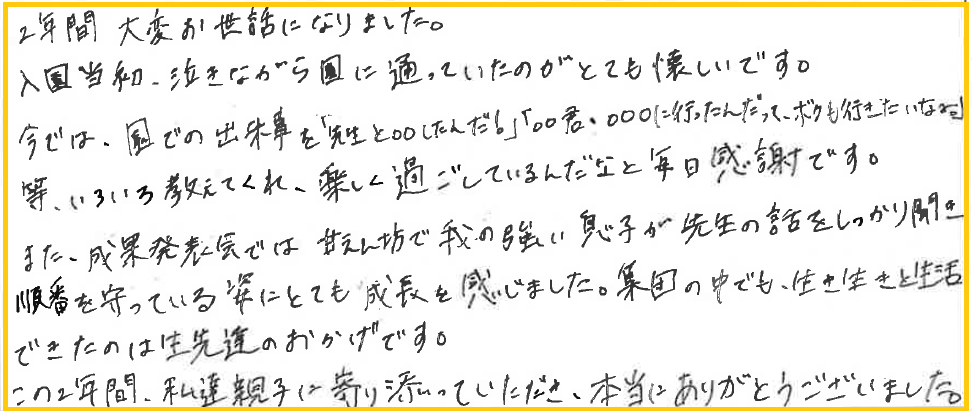 2年間 大変お世話になりました。
入園当初、泣きながら園に通っていたのがとても懐しいです。
今では、園での出来事を「先生と○○したんだ！」「○○君、○○○に行ったんだって、ボクも行きたいなぁ」
等、いろいろ教えてくれ、楽しく過ごしているんだなと毎日感謝です。
また、成果発表会では甘えん坊で我の強い息子が先生の話をしっかり聞き
順番を守っている姿にとても成長を感じました。集団の中でも、生き生きと生活
できたのは生先達のおかげです。
この2年間、私達親子に寄り添っていただき、本当にありがとうございました。